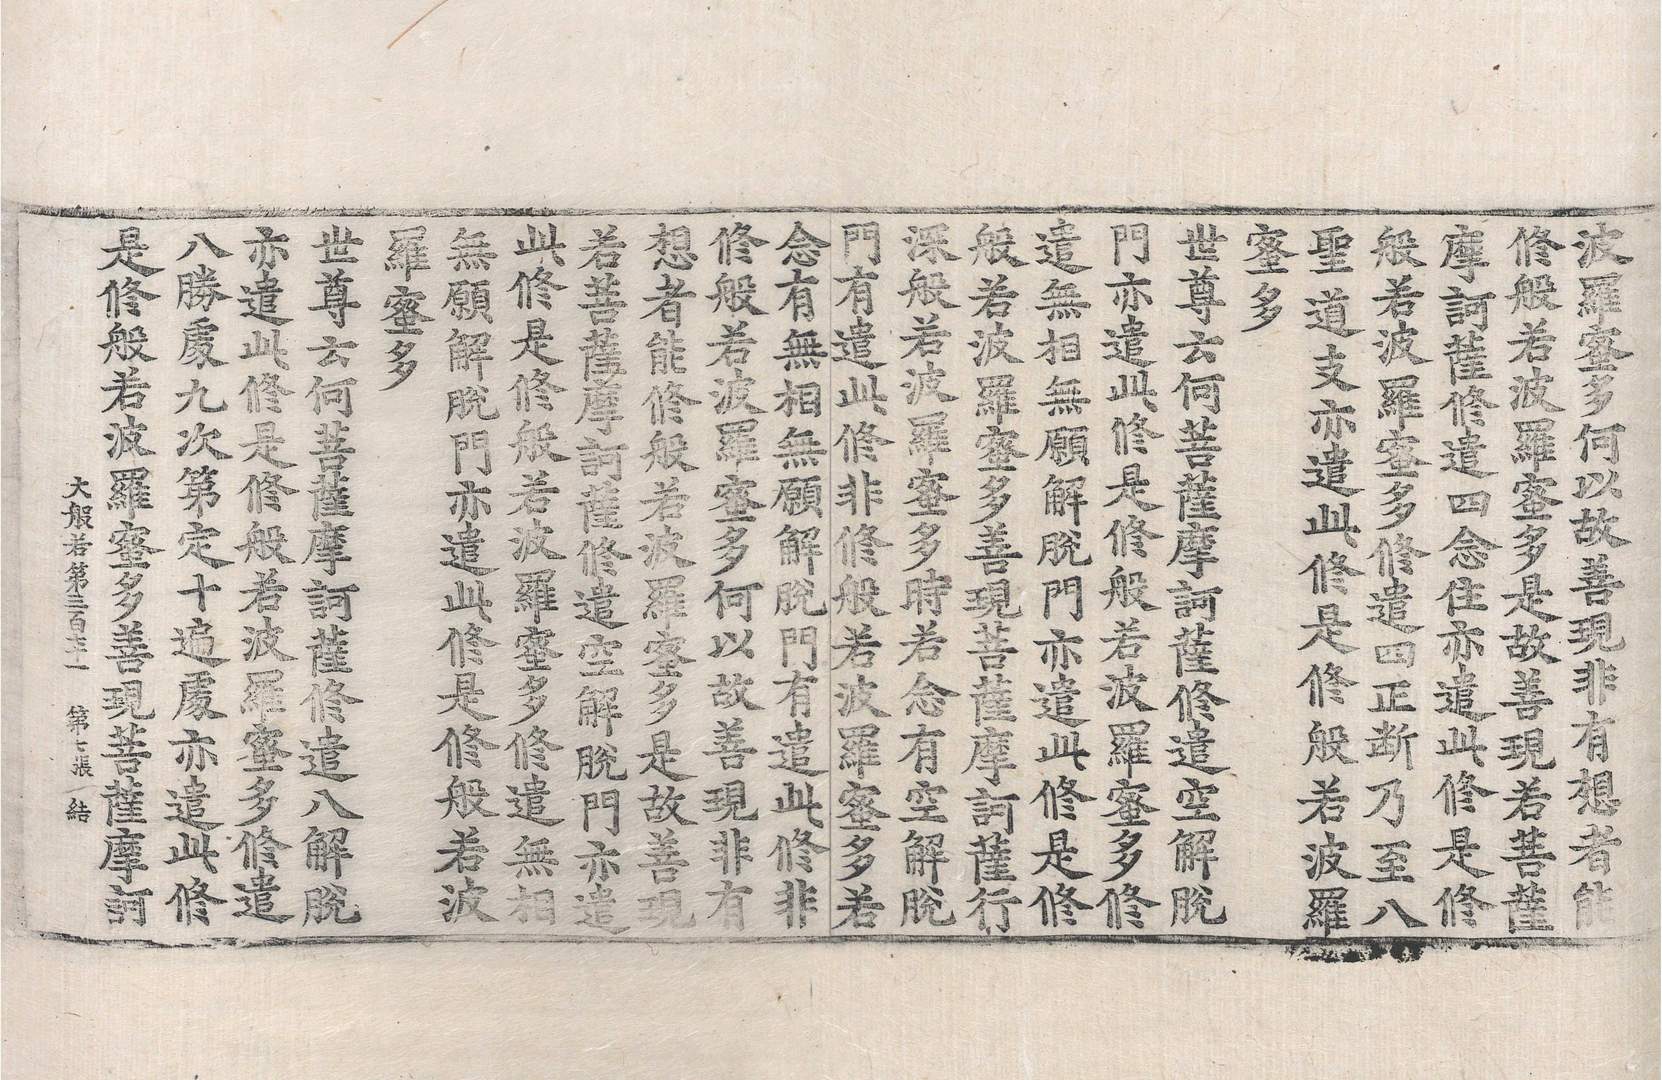 波羅蜜多何以故善現非有想者能
修般若波羅蜜多是故善現若菩薩
摩訶薩修遣四念住亦遣此修是修
般若波羅蜜多修遣四正斷乃至八
聖道支亦遣此修是修般若波羅
蜜多
世尊云何菩薩摩訶薩修遣空解脫
門亦遣此修是修般若波羅蜜多修
遣無相無願解脫門亦遣此修是修
般若波羅蜜多善現菩薩摩訶薩行
深般若波羅蜜多時若念有空解脫
門有遣此修非修般若波羅蜜多若
念有無相無願解脫門有遣此修非
修般若波羅蜜多何以故善現非有
想者能修般若波羅蜜多是故善現
若菩薩摩訶薩修遣空解脫門亦遣
此修是修般若波羅蜜多修遣無相
無願解脫門亦遣此修是修般若波
羅蜜多
世尊云何菩薩摩訶薩修遣八解脫
亦遣此修是修般若波羅蜜多修遣
八勝處九次第定十遍處亦遣此修
是修般若波羅蜜多善現菩薩摩訶
大般若第三百七十一　第七張　結